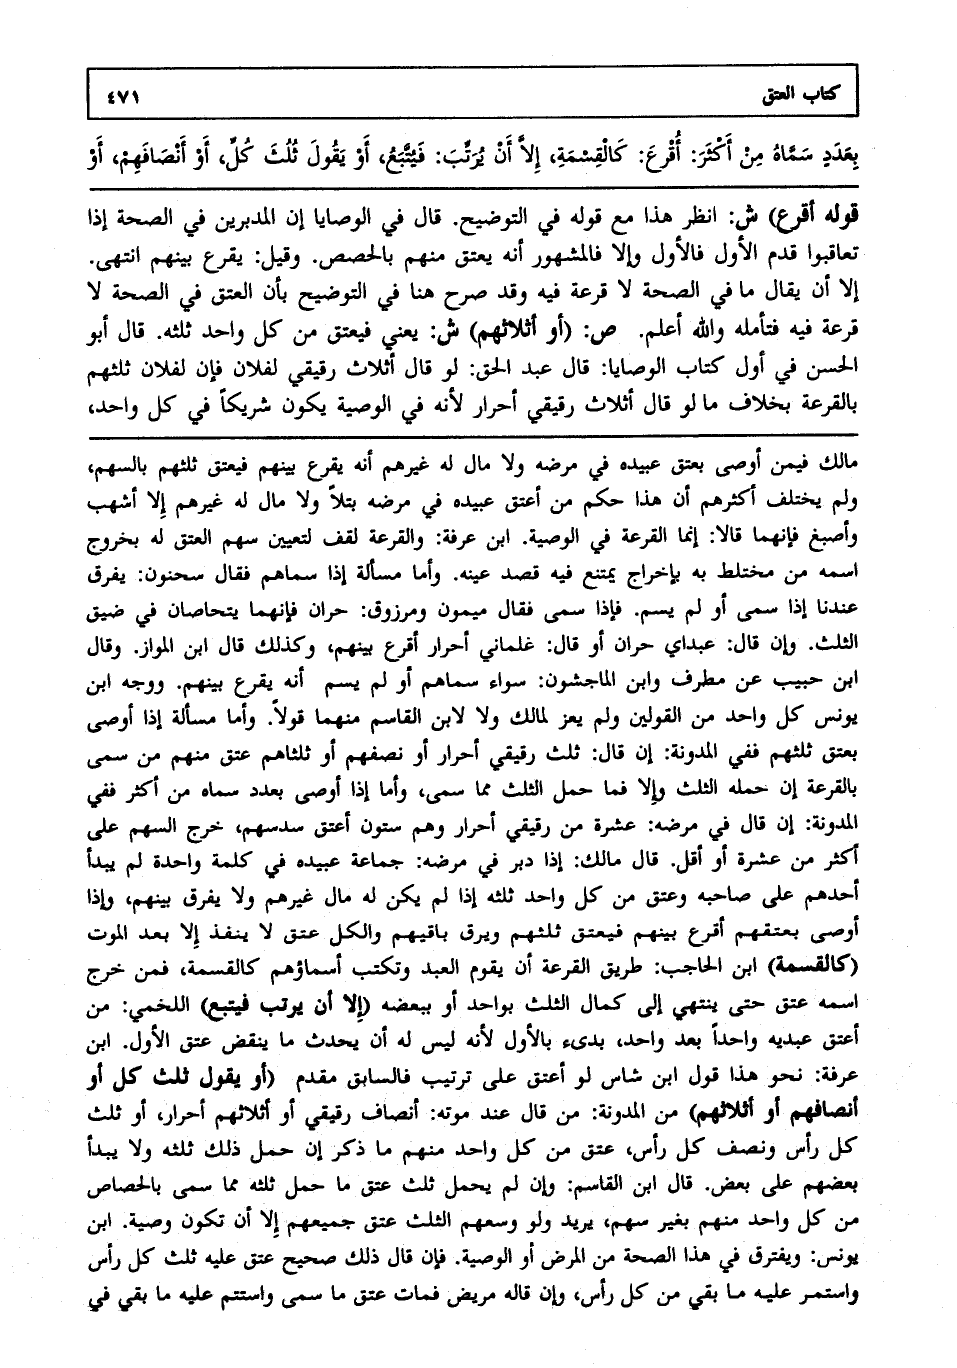 كتاب العتق
٤٧١
بِعَدَدٍ سَمَّاهُ مِنْ أَكْثَرَ: أُقْرِعَ: كَالْقِسْمَةِ، إِلاَّ أَنْ يُرَتِّبَ: فَيُتَّبَعُ، أَوْ يَقُولَ ثُلُثَ كُلٍّ، أَوْ أَنْصَافَهِمْ، أَوْ
قوله أقرع) ش: انظر هذا مع قوله في التوضيح. قال في الوصايا إن المدبرين في الصحة إذا
تعاقبوا قدم الأول فالأول وإلا فالمشهور أنه يعتق منهم بالحصص. وقيل: يقرع بينهم انتهى.
إلا أن يقال ما في الصحة لا قرعة فيه وقد صرح هنا في التوضيح بأن العتق في الصحة لا
قرعة فيه فتأمله والله أعلم. ص: (أو أثلاثهم) ش: يعني فيعتق من كل واحد ثلثه. قال أبو
الحسن في أول كتاب الوصايا: قال عبد الحق: لو قال أثلاث رقيقي لفلان فإن لفلان ثلثهم
بالقرعة بخلاف ما لو قال أثلاث رقيقي أحرار لأنه في الوصية يكون شريكاً في كل واحد،
مالك فيمن أوصى بعتق عبيده في مرضه ولا مال له غيرهم أنه يقرع بينهم فيعتق ثلثهم بالسهم،
ولم يختلف أكثرهم أن هذا حكم من أعتق عبيده في مرضه بتلاً ولا مال له غيرهم إلا أشهب
وأصبغ فإنهما قالا: إنما القرعة في الوصية. ابن عرفة: والقرعة لقف لتعيين سهم العتق له بخروج
اسمه من مختلط به بإخراج يمتنع فيه قصد عينه. وأما مسألة إذا سماهم فقال سحنون: يفرق
عندنا إذا سمى أو لم يسم. فإذا سمى فقال ميمون ومرزوق: حران فإنهما يتحاصان في ضيق
الثلث. وإن قال: عبداي حران أو قال: غلماني أحرار أقرع بينهم، وكذلك قال ابن المواز. وقال
ابن حبيب عن مطرف وابن الماجشون: سواء سماهم أو لم يسم أنه يقرع بينهم. ووجه ابن
يونس كل واحد من القولين ولم يعز لمالك ولا لابن القاسم منهما قولاً. وأما مسألة إذا أوصى
بعتق ثلثهم ففي المدونة: إن قال: ثلث رقيقي أحرار أو نصفهم أو ثلثاهم عتق منهم من سمى
بالقرعة إن حمله الثلث وإلا فما حمل الثلث مما سمى، وأما إذا أوصى بعدد سماه من أكثر ففي
المدونة: إن قال في مرضه: عشرة من رقيقي أحرار وهم ستون أعتق سدسهم، خرج السهم على
أكثر من عشرة أو أقل. قال مالك: إذا دبر في مرضه: جماعة عبيده في كلمة واحدة لم يبدأ
أحدهم على صاحبه وعتق من كل واحد ثلثه إذا لم يكن له مال غيرهم ولا يفرق بينهم، وإذا
أوصى بعتقهم أقرع بينهم فيعتق ثلثهم ويرق باقيهم والكل عتق لا ينفذ إلا بعد الموت
(كالقسمة) ابن الحاجب: طريق القرعة أن يقوم العبد وتكتب أسماؤهم كالقسمة، فمن خرج
اسمه عتق حتى ينتهي إلى كمال الثلث بواحد أو ببعضه (إلا أن يرتب فيتبع) اللخمي: من
أعتق عبديه واحداً بعد واحد، بدىء بالأول لأنه ليس له أن يحدث ما ينقض عتق الأول. ابن
عرفة: نحو هذا قول ابن شاس لو أعتق على ترتيب فالسابق مقدم (أو يقول ثلث كل أو
أنصافهم أو أثلاثهم) من المدونة: من قال عند موته: أنصاف رقيقي أو أثلاثهم أحرار، أو ثلث
كل رأس ونصف كل رأس، عتق من كل واحد منهم ما ذكر إن حمل ذلك ثلثه ولا يبدأ
بعضهم على بعض. قال ابن القاسم: وإن لم يحمل ثلث عتق ما حمل ثلثه مما سمى بالحصاص
من كل واحد منهم بغير سهم، يريد ولو وسعهم الثلث عتق جميعهم إلا أن تكون وصية. ابن
يونس: ويفترق في هذا الصحة من المرض أو الوصية. فإن قال ذلك صحيح عتق عليه ثلث كل رأس
واستمر عليه ما بقي من كل رأس، وإن قاله مريض فمات عتق ما سمى واستتم عليه ما بقي في